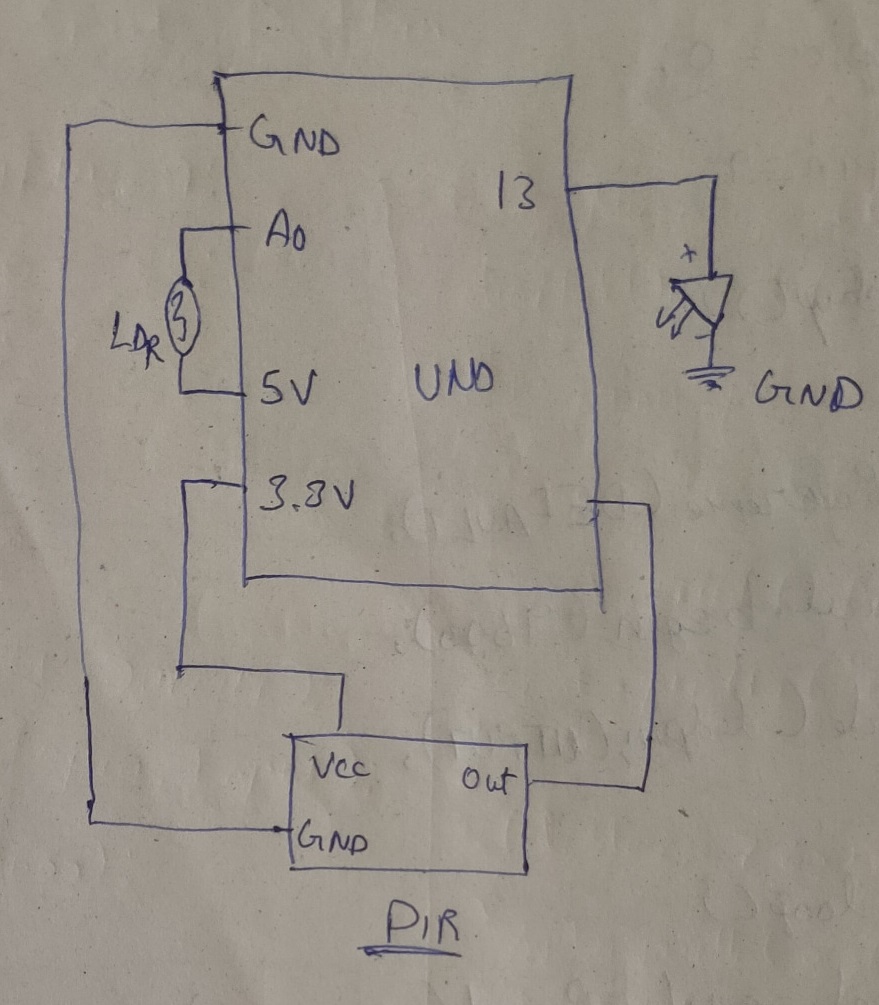 GND
13
A0
+
LDR
5V
UNO
-
GND
3.3V
Vcc
Out
GND
PIR